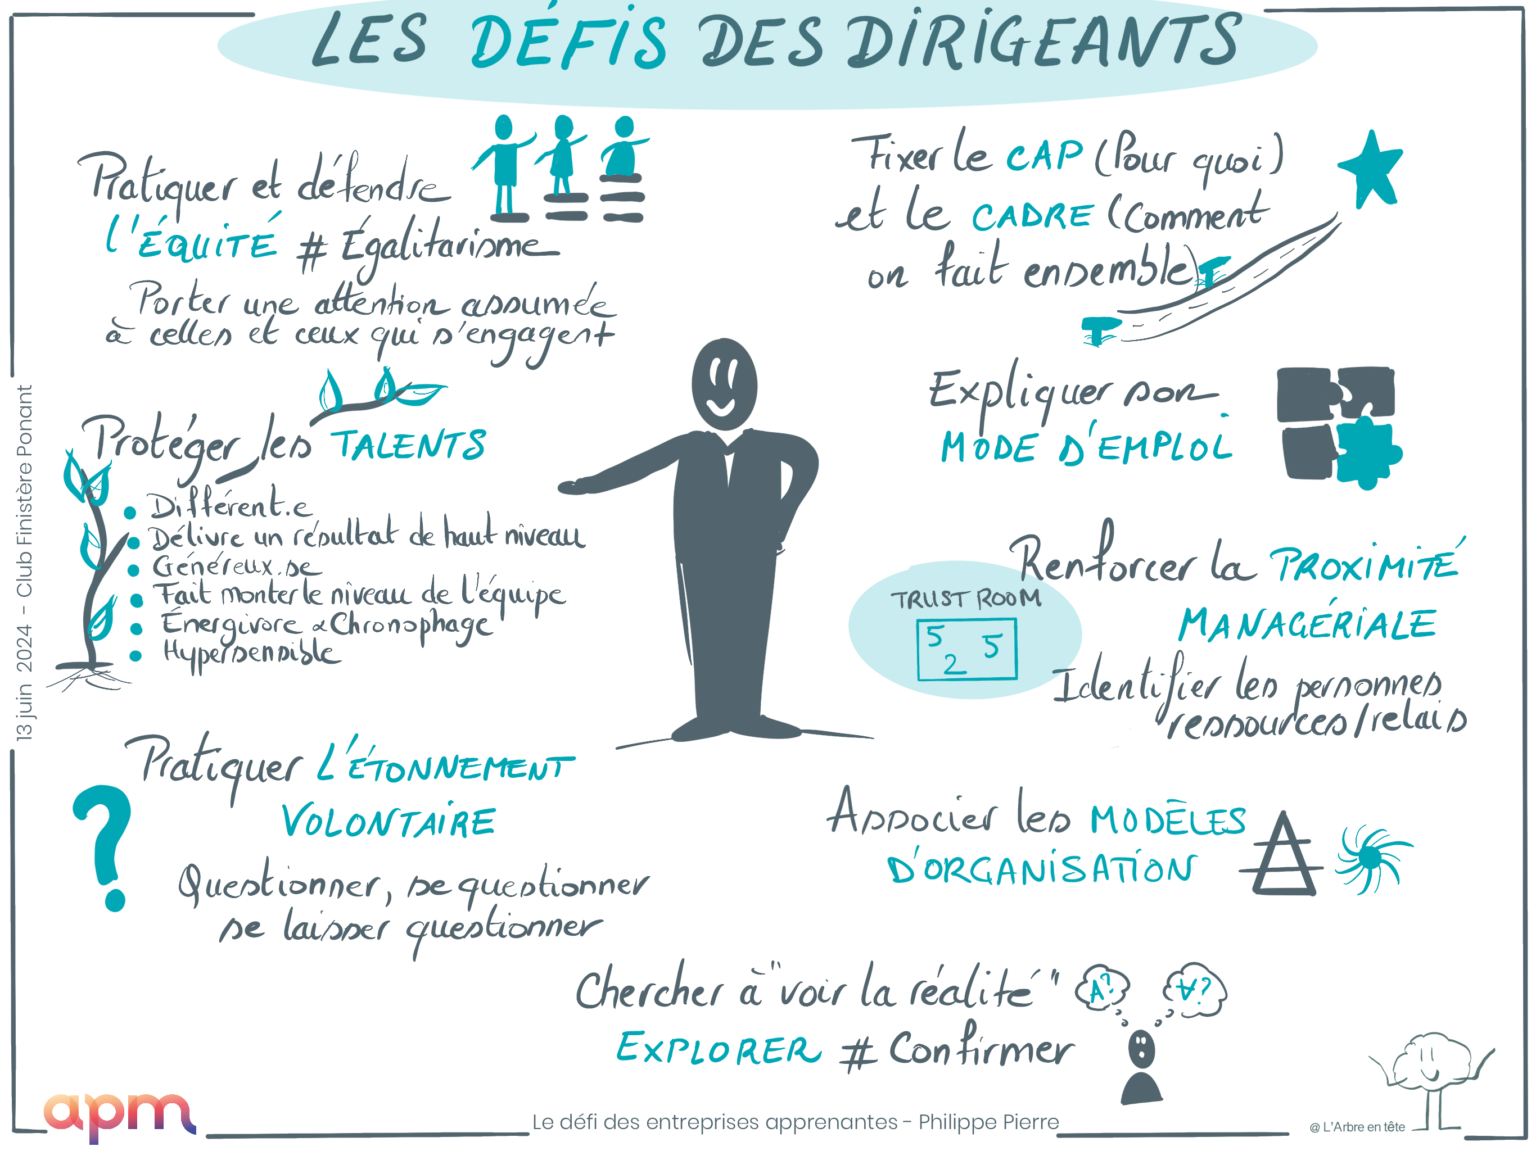 LES DÉFIS DES DIRIGEANTS
Pratiquer et défendre
l'ÉQUITÉ # Égalitarisme
Porter une attention assumée
à celles et ceux qui s'engagent
Protéger les TALENTS
Différent.e
Délivre un résultat de haut niveau
Généreux.se
Fait monter le niveau de l'équipe
Énergivore & Chronophage
Hypersensible
Pratiquer L'ÉTONNEMENT
VOLONTAIRE
?
Questionner, se questionner
se laisser questionner
Fixer le CAP (Pour quoi)
et le CADRE (Comment
on fait ensemble)
Expliquer son
MODE D'EMPLOI
Renforcer la PROXIMITÉ
MANAGÉRIALE
TRUST ROOM
5 5
2
Identifier les personnes
ressources/relais
Associer les MODÈLES
D'ORGANISATION
Chercher à "voir la réalité"
EXPLORER # Confirmer
A? ∀?
13 juin 2024 - Club Finistère Ponant
apm
Le défi des entreprises apprenantes - Philippe Pierre
@ L'Arbre en tête